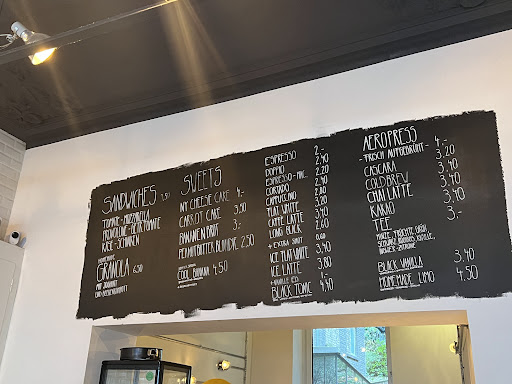 SANDWICHES 7,50
TOMATE-MOZZARELLA
PROVOLONE-
KÄSE-SCHINKEN
GRANOLA 6,50
MIT JOGHURT
SWEETS
NY CHEESE CAKE 4,-
CARROT CAKE 3,50
BANANENBROT 3,-
PEANUTBUTTER BLONDIE 2,50
COOL BANANA 4,50
ESPRESSO 2,-
DOPPIO 2,40
ESPRESSO-MAC. 2,20
CORTADO 2,40
CAPPUCCINO 2,80
FLAT WHITE 3,20
CAFFE LATTE 3,40
LONG BLACK 2,60
+ EXTRA SHOT 0,60
ICE FLAT WHITE 3,40
ICE LATTE 3,80
BLACK TONIC 4,40
AEROPRESS 4,-
- FRISCH AUFGEBRÜHT -
CASCARA 3,20
COLD BREW 3,40
CHAI LATTE 3,40
KAKAO 3,40
TEE 3,-
MINZE, FRÜCHTE, GRÜN,
SCHWARZ, KAMILLE,
INGWER-ZITRONE
BLACK VANILLA 3,40
HOMEMADE LIMO 4,50